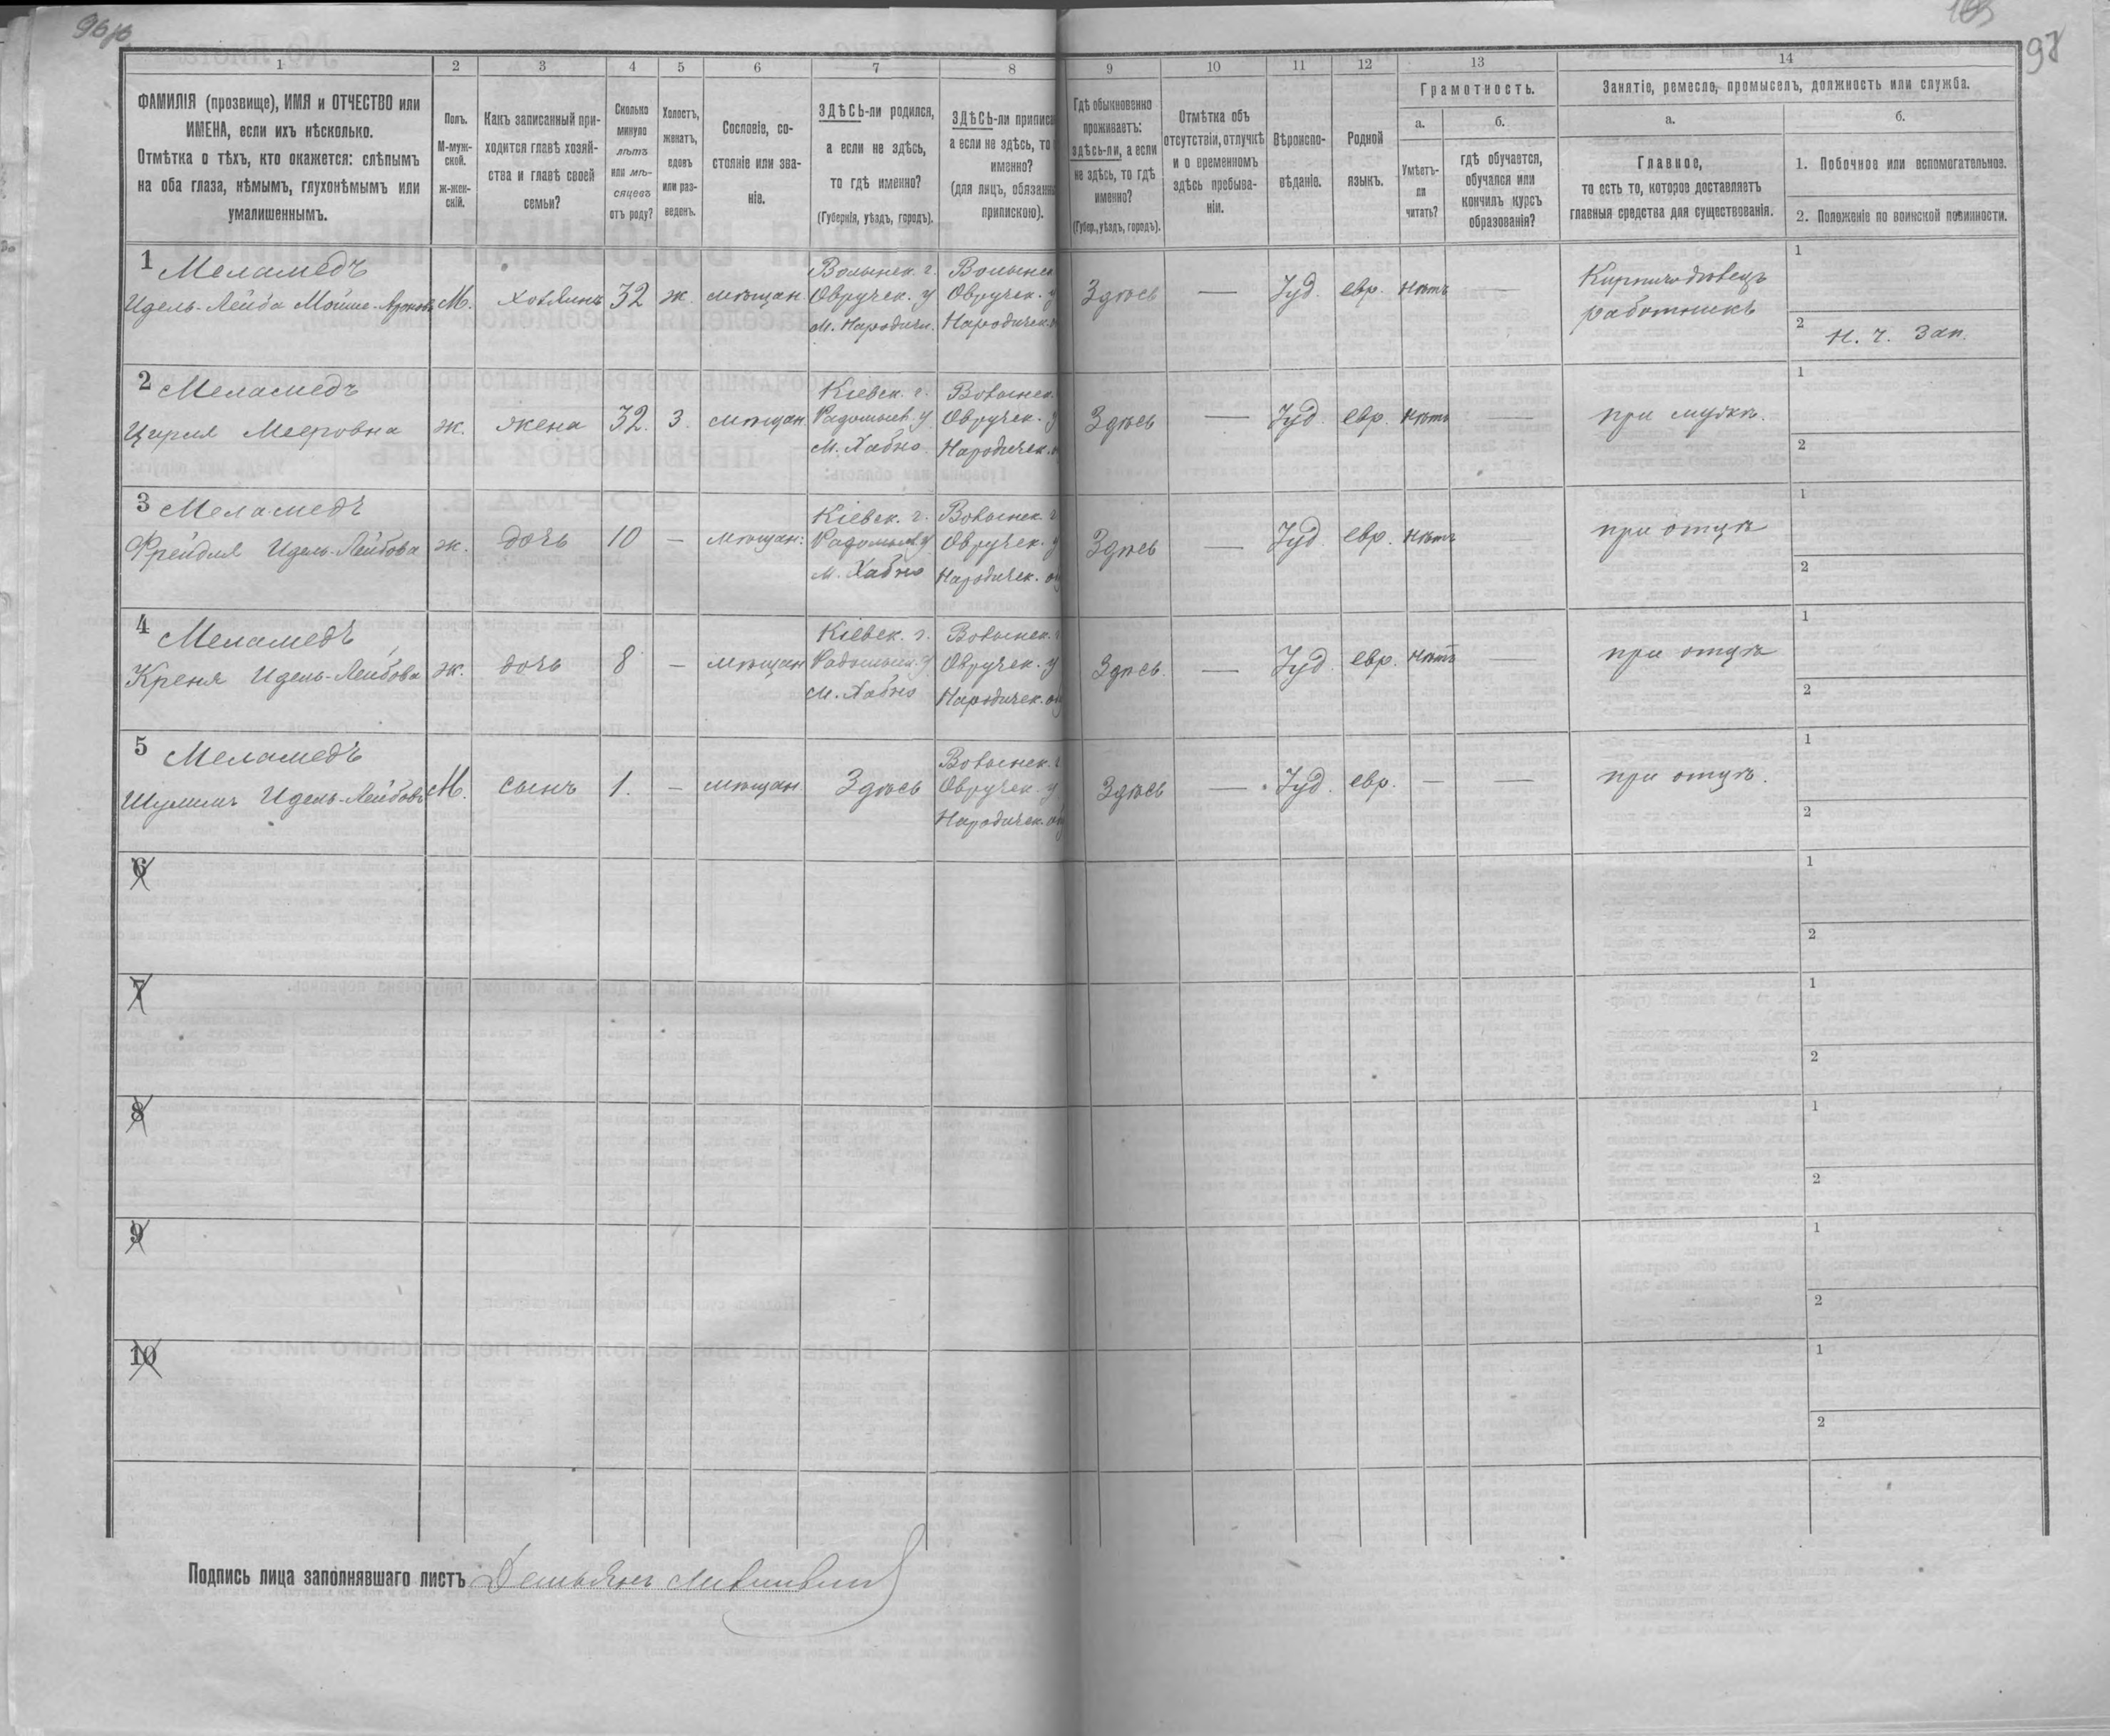 97
1
2
3
4
5
6
7
8
9
10
11
12
13
14
ФАМИЛІЯ (прозвище), ИМЯ и ОТЧЕСТВО или
ИМЕНА, если ихъ нѣсколько.
Отмѣтка о тѣхъ, кто окажется: слѣпымъ
на оба глаза, нѣмымъ, глухонѣмымъ или
умалишеннымъ.
Полъ.
М-муж-
ской.
ж-жен-
скій.
Какъ записанный при-
ходится главѣ хозяй-
ства и главѣ своей
семьи?
Сколько
минуло
лѣтъ
или мѣ-
сяцевъ
отъ роду?
Холостъ,
женатъ,
вдовъ
или раз-
веденъ.
Сословіе, со-
стояніе или зва-
ніе.
ЗДѢСЬ-ли родился,
а если не здѣсь,
то гдѣ именно?
(Губернія, уѣздъ, городъ).
ЗДѢСЬ-ли
а если не здѣсь, то
именно?
(для лицъ,
припискою).
Гдѣ обыкновенно
проживаетъ:
здѣсь-ли, а если
не здѣсь, то гдѣ
именно?
(Губер., уѣздъ, городъ).
Отмѣтка объ
отсутствіи, отлучкѣ
и о временномъ
здѣсь пребыва-
ніи.
Вѣроиспо-
вѣданіе.
Родной
языкъ.
Грамотность.
а.
Умѣетъ-
ли
читать?
б.
гдѣ обучается,
обучался или
кончилъ курсъ
образованія?
Занятіе, ремесло, промыселъ, должность или служба.
а.
Главное,
то есть то, которое доставляетъ
главныя средства для существованія.
б.
1. Побочное или вспомогательное.
2. Положеніе по воинской повинности.
1 Меламедъ
Идель-Лейба Мойше-
М.
32
ж.
мѣщан
Волынск. г.
Овручск. у
м. Народичи.
Волынск
Овручск. у
Народичск.
Здѣсь
—
Іуд.
евр.
нѣтъ
—
Кирпичодѣлецъ
работникъ
1
2 Н. ч. Зап.
2 Меламедъ
Цирля Мееровна
ж.
жена
32.
З.
мѣщан.
Кіевск. г.
Радомысл. у
м. Хабно
Волынск.
Овручск. у
Народичск.
Здѣсь
—
Іуд.
евр.
нѣтъ
—
при мужѣ.
1
2
3 Меламедъ
Фрейдля Идель-Лейбова
ж.
дочь
10
—
мѣщан.
Кіевск. г.
Радомысл у
м. Хабно
Волынск. г
Овручск. у
Народичск.
Здѣсь
—
Іуд.
евр.
нѣтъ
при отцѣ
1
2
4 Меламедъ
Креня Идель-Лейбова
ж.
дочь
8
—
мѣщан
Кіевск. г.
Радомысл. у
м. Хабно
Волынск. г
Овручск. у
Народичск.
Здѣсь.
—
Іуд.
евр.
нѣтъ
—
при отцѣ
1
2
5 Меламедъ
Шулимъ Идель-Лейбовъ
М.
сынъ
1.
—
мѣщан
Здѣсь
Волынск. г
Овручск. у
Народичск.
Здѣсь
—
Іуд.
евр.
—
—
при отцѣ.
1
2
6
1
2
7
1
2
8
1
2
9
1
2
10
1
2
Подпись лица заполнявшаго листъ